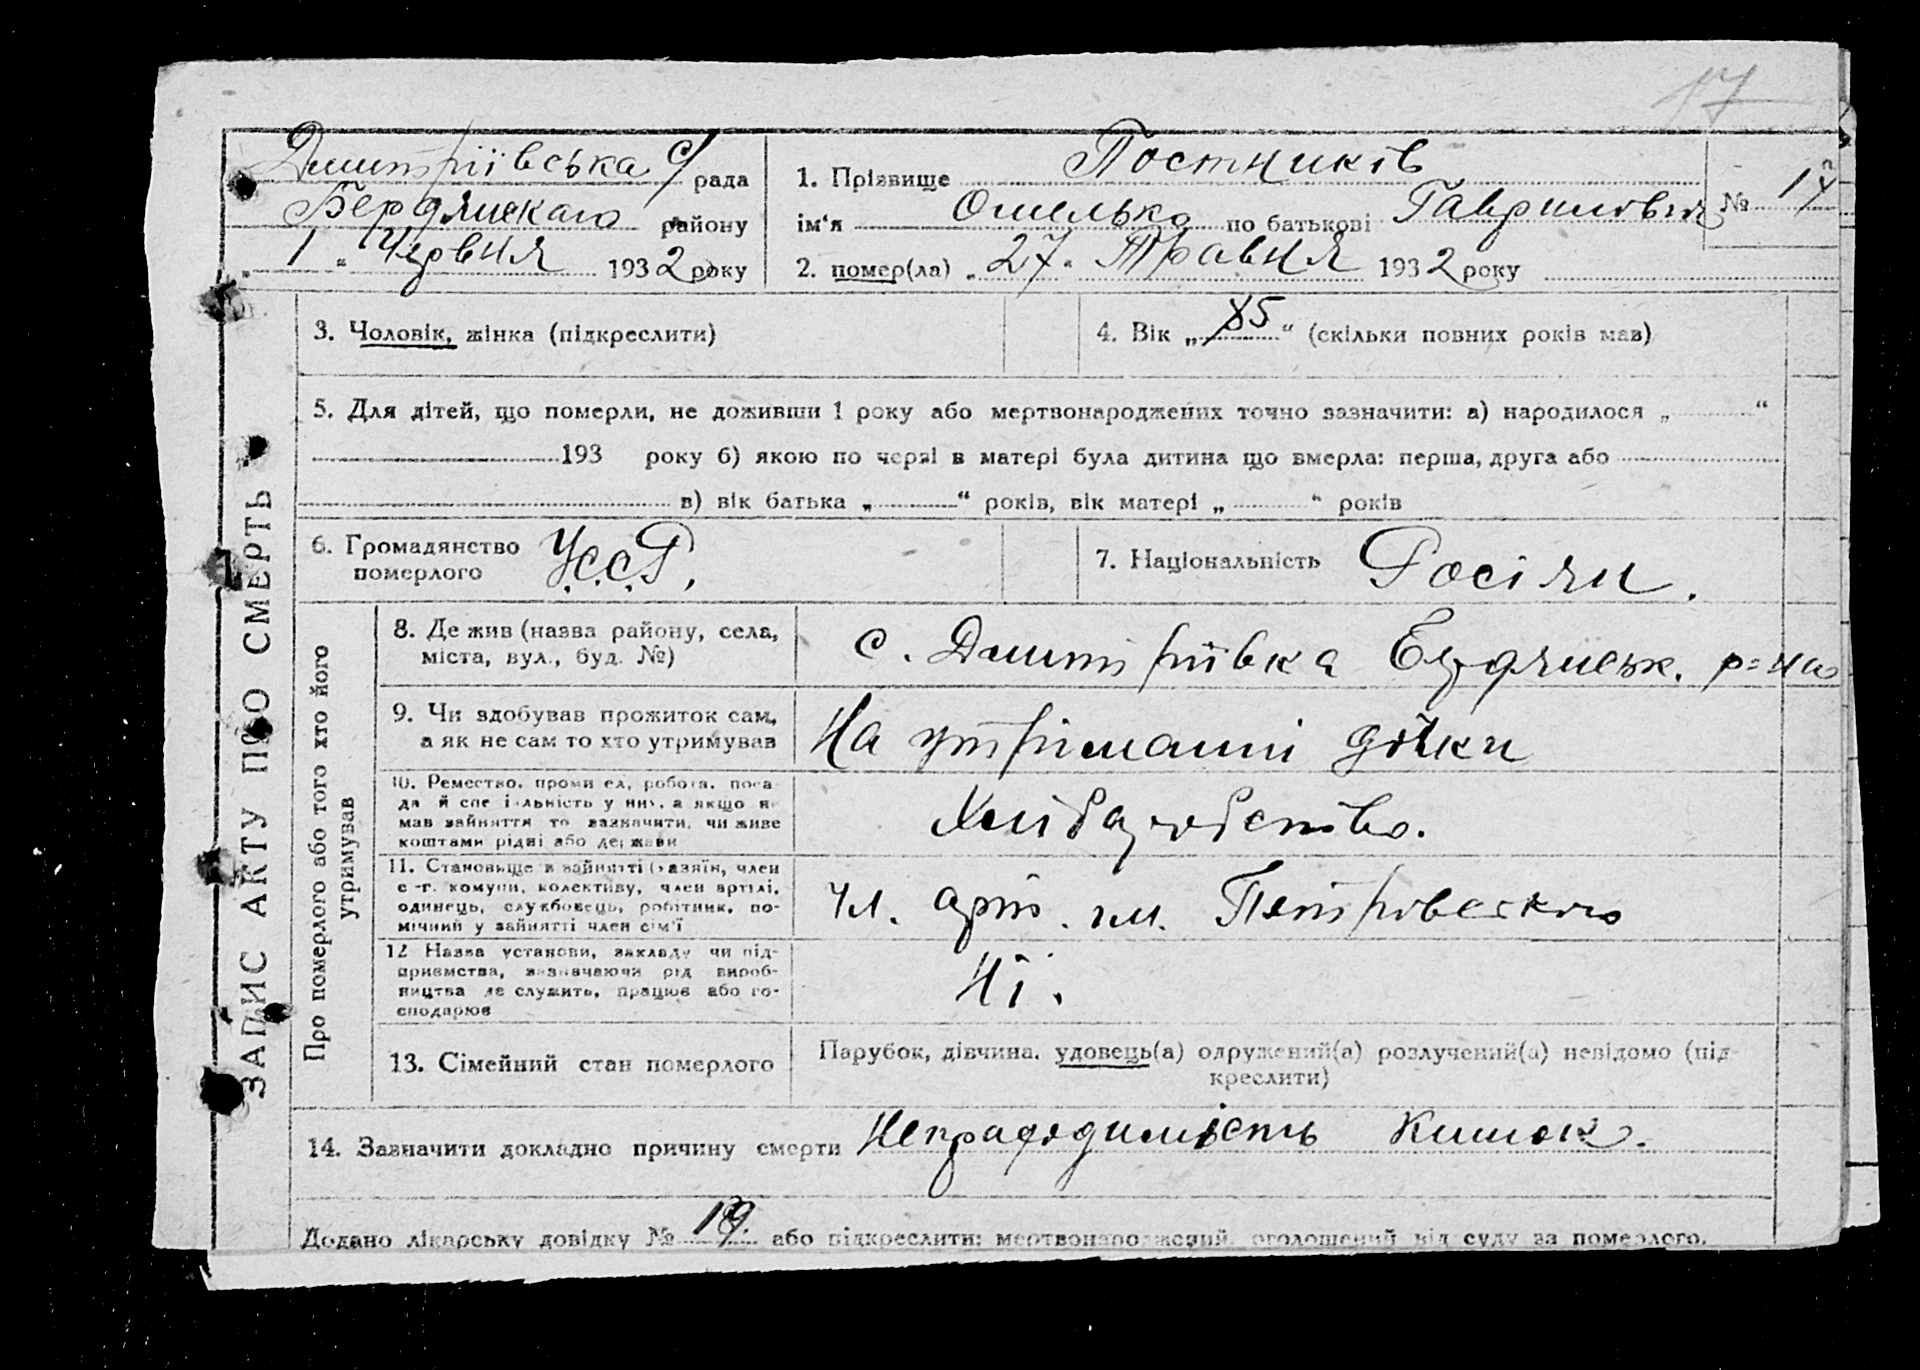 17
Дмитріївська с/рада
Бердянського району
„ 1 “ Червня 1932 року
1. Прізвище Постніків
ім‘я Омелько по батькові Гаврилович
№ 17
2. помер(ла) „ 27 “ Травня 1932 року
ЗАПИС АКТУ ПРО СМЕРТЬ
3. Чоловік, жінка (підкреслити)
4. Вік „ 85 “ (скільки повних років мав)
5. Для дітей, що померли, не доживши 1 року або мертвонароджених точно зазначити: а) народилося „ “
193 року б) якою по черзі в матері була дитина що вмерла: перша, друга або
в) вік батька „ “ років, вік матері „ “ років
6. Громадянство
померлого У.С.С.Р.
7. Національність Росіян.
Про померлого або того хто його
утримував
8. Де жив (назва району, села,
міста, вул., буд. №)
с. Дмитріївка Бердянськ. р-ну
9. Чи здобував прожиток сам,
а як не сам то хто утримував
На утриманні дочки
10. Ремество, промисел, робота, поса-
да й спеціальність у них, а якщо не
мав зайняття то зазначити, чи живе
коштами рідні або держави
Хліборобство.
11. Становище в зайнятті (хазяїн, член
с-г. комуни, колективу, член артілі,
одинець, службовець, робітник, по-
мічний у зайнятті член сім‘ї
чл. арт. ім. Петровського
12 Назва установи, закладу чи під-
приємства, зазначаючи рід вироб-
ництва де служить, працює або го-
сподарює
Ні.
13. Сімейний стан померлого
Парубок, дівчина, удовець(а) одружений(а) розлучений(а) невідомо (під-
креслити)
14. Зазначити докладно причину смерти Непраходимість Кишок.
Додано лікарську довідку № 19. або підкреслити: мертвонароджений, оголошений від суду за померлого.